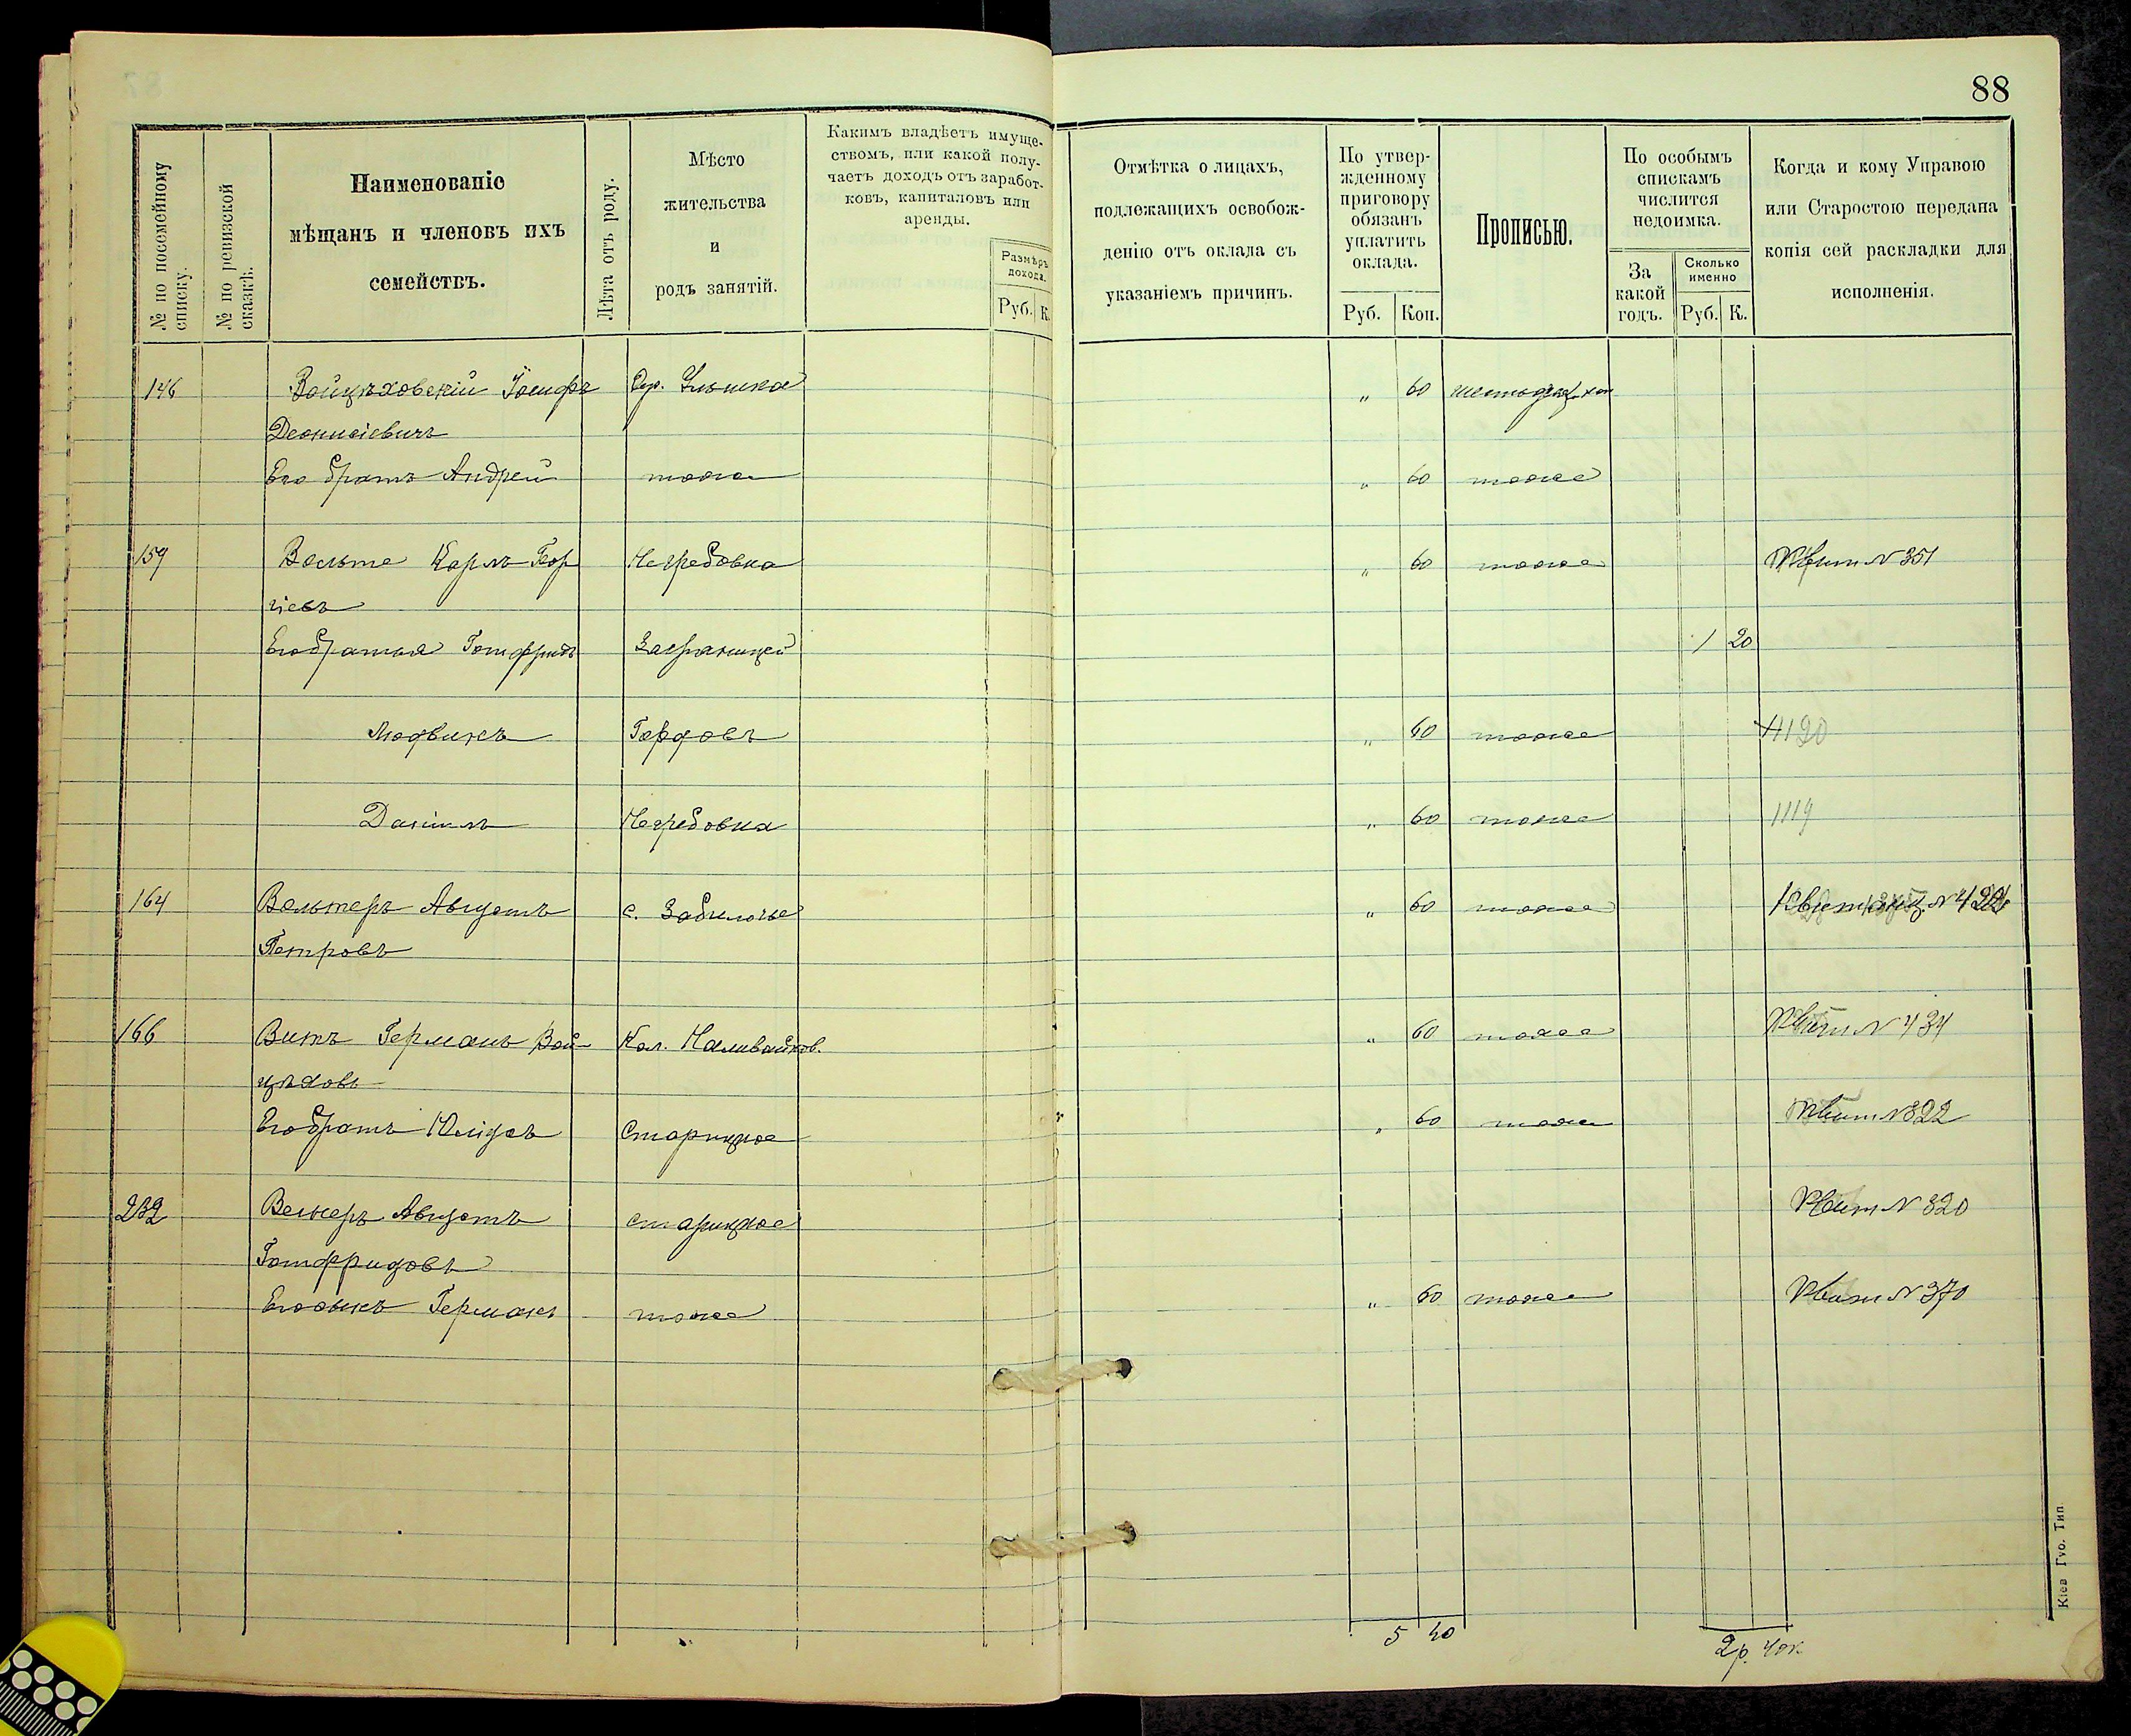 88
№ по посемейному списку.
№ по ревизской сказкѣ.
Наименованіе
мѣщанъ и членовъ ихъ
семействъ.
Лѣта отъ роду.
Мѣсто
жительства
и
родъ занятій.
Какимъ владѣетъ имуще-
ствомъ, или какой полу-
чаетъ доходъ отъ заработ-
ковъ, капиталовъ или
аренды.
Размѣръ
дохода.
Руб. К.
Отмѣтка о лицахъ,
подлежащихъ освобож-
денію отъ оклада съ
указаніемъ причинъ.
По утвер-
жденному
приговору
обязанъ
уплатить
оклада.
Руб. Коп.
Прописью.
По особымъ
спискамъ
числится
недоимка.
За
какой
годъ.
Сколько
именно
Руб. К.
Когда и кому Управою
или Старостою передана
копія сей раскладки для
исполненія.
146 Войцѣховскій Іосифъ " 60
Деонисіевичъ
Его братъ Андрей тоже " 60 тоже
159 Вольте Карлъ Геор Негребовка " 60 тоже Квит № 351
гіевъ
Его братья Готфридъ Заграницей 1 20
Людвикъ " 60 тоже 1120
Даніилъ Негребовка " 60 тоже 1119
164 Вольтеръ Августъ с. Забилочье " 60 тоже
Петровъ
166 Витъ Германъ Вой- Кол. Наливайков. " 60 тоже Квит № 434
цѣховъ
Его братъ Юліусъ Старицкое " 60 тоже Квит № 322
232 Веккеръ Августъ старицкое Квит № 320
Готфридовъ
Его сынъ Германъ тоже " 60 тоже Квит № 370
5 40
2 р. 40 к.
Кіев Гуо. Тип.